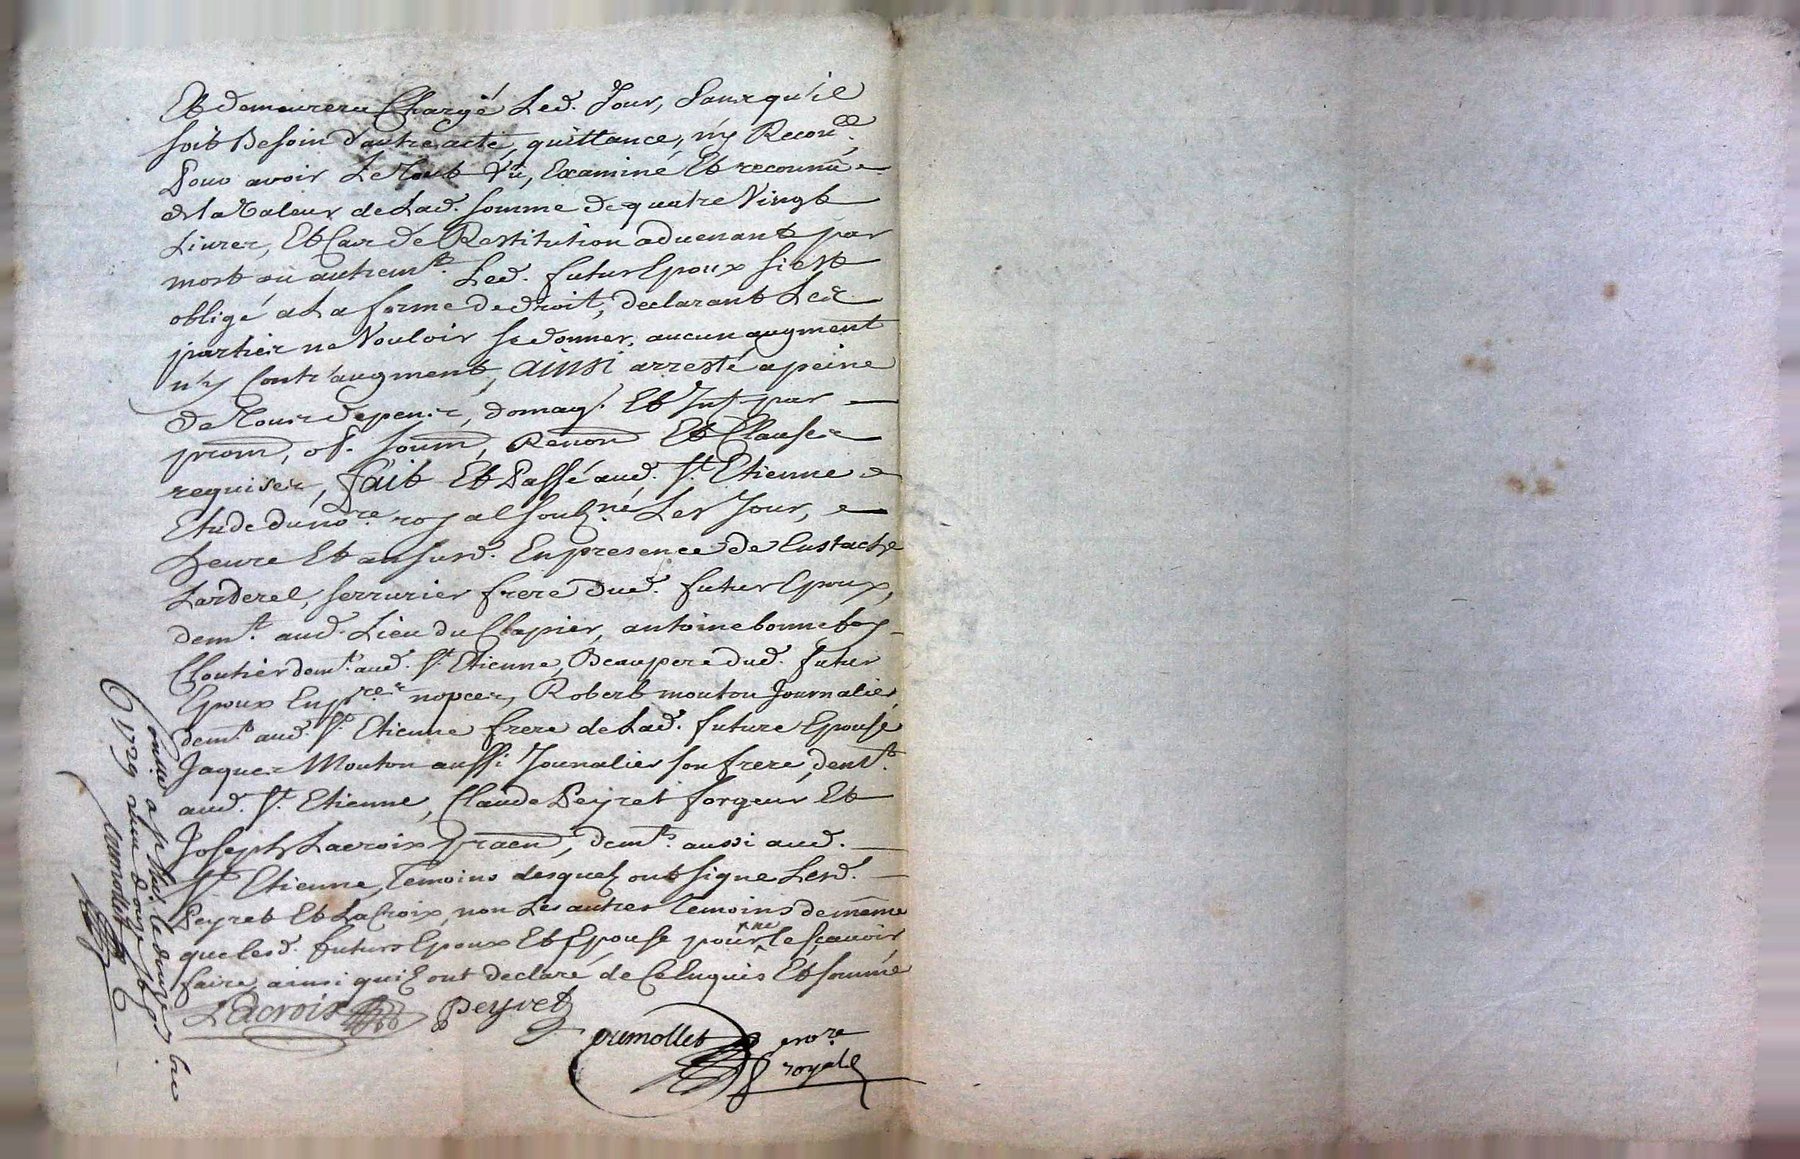 Et demeurera Chargé Led. Jour, Sans qu'il
soit Besoin d'autre acte, quittance, ny Reconce.
Pour avoir Le Tout Vû, Examiné Et reconnû
de la Valeur de Lad. somme de quatre Vingt
Livres, Et Cas de Restitution advenant par
mort ou autremt. Led. futur Epoux s'est
obligé a La forme de droit, declarant Led.
parties ne Vouloir se donner, aucun augment
n'y Contr'augment, ainsi arresté a peine
de Tous depens, domag. Et Int. par
prom, ob. soum, Renon Et Clauses
requises, fait Et Passé aud. St. Etienne
Etude du nore. royal souss.né Les Jour,
heure Et an susd. En presence de Eustache
Larderel, serrurier frere dud. futur Epoux,
demt. aud. Lieu du Clapier, antoine bonnefoy
Cloutier demt. aud. St. Etienne, Beaupere dud. futur
Epoux En pres. nopces, Robert mouton Journalier
demt. aud. St. Etienne frere de Lad. future Epouse
Jaques Mouton aussi Journalier son frere, demt.
aud. St. Etienne, Claude Peyret forgeur Et
Joseph Lacroix demt. aussi aud.
St. Etienne, Temoins desquels ont signe Lesd.
Peyret Et LaCroix, non Les autres Temoins de même
que lesd. futurs Epoux Et Epouse pour ne le sçavoir
faire, ainsi qu'ils ont declaré de Ce Enquis Et sommé
LaCroix Peyret
nore.
royal
1729